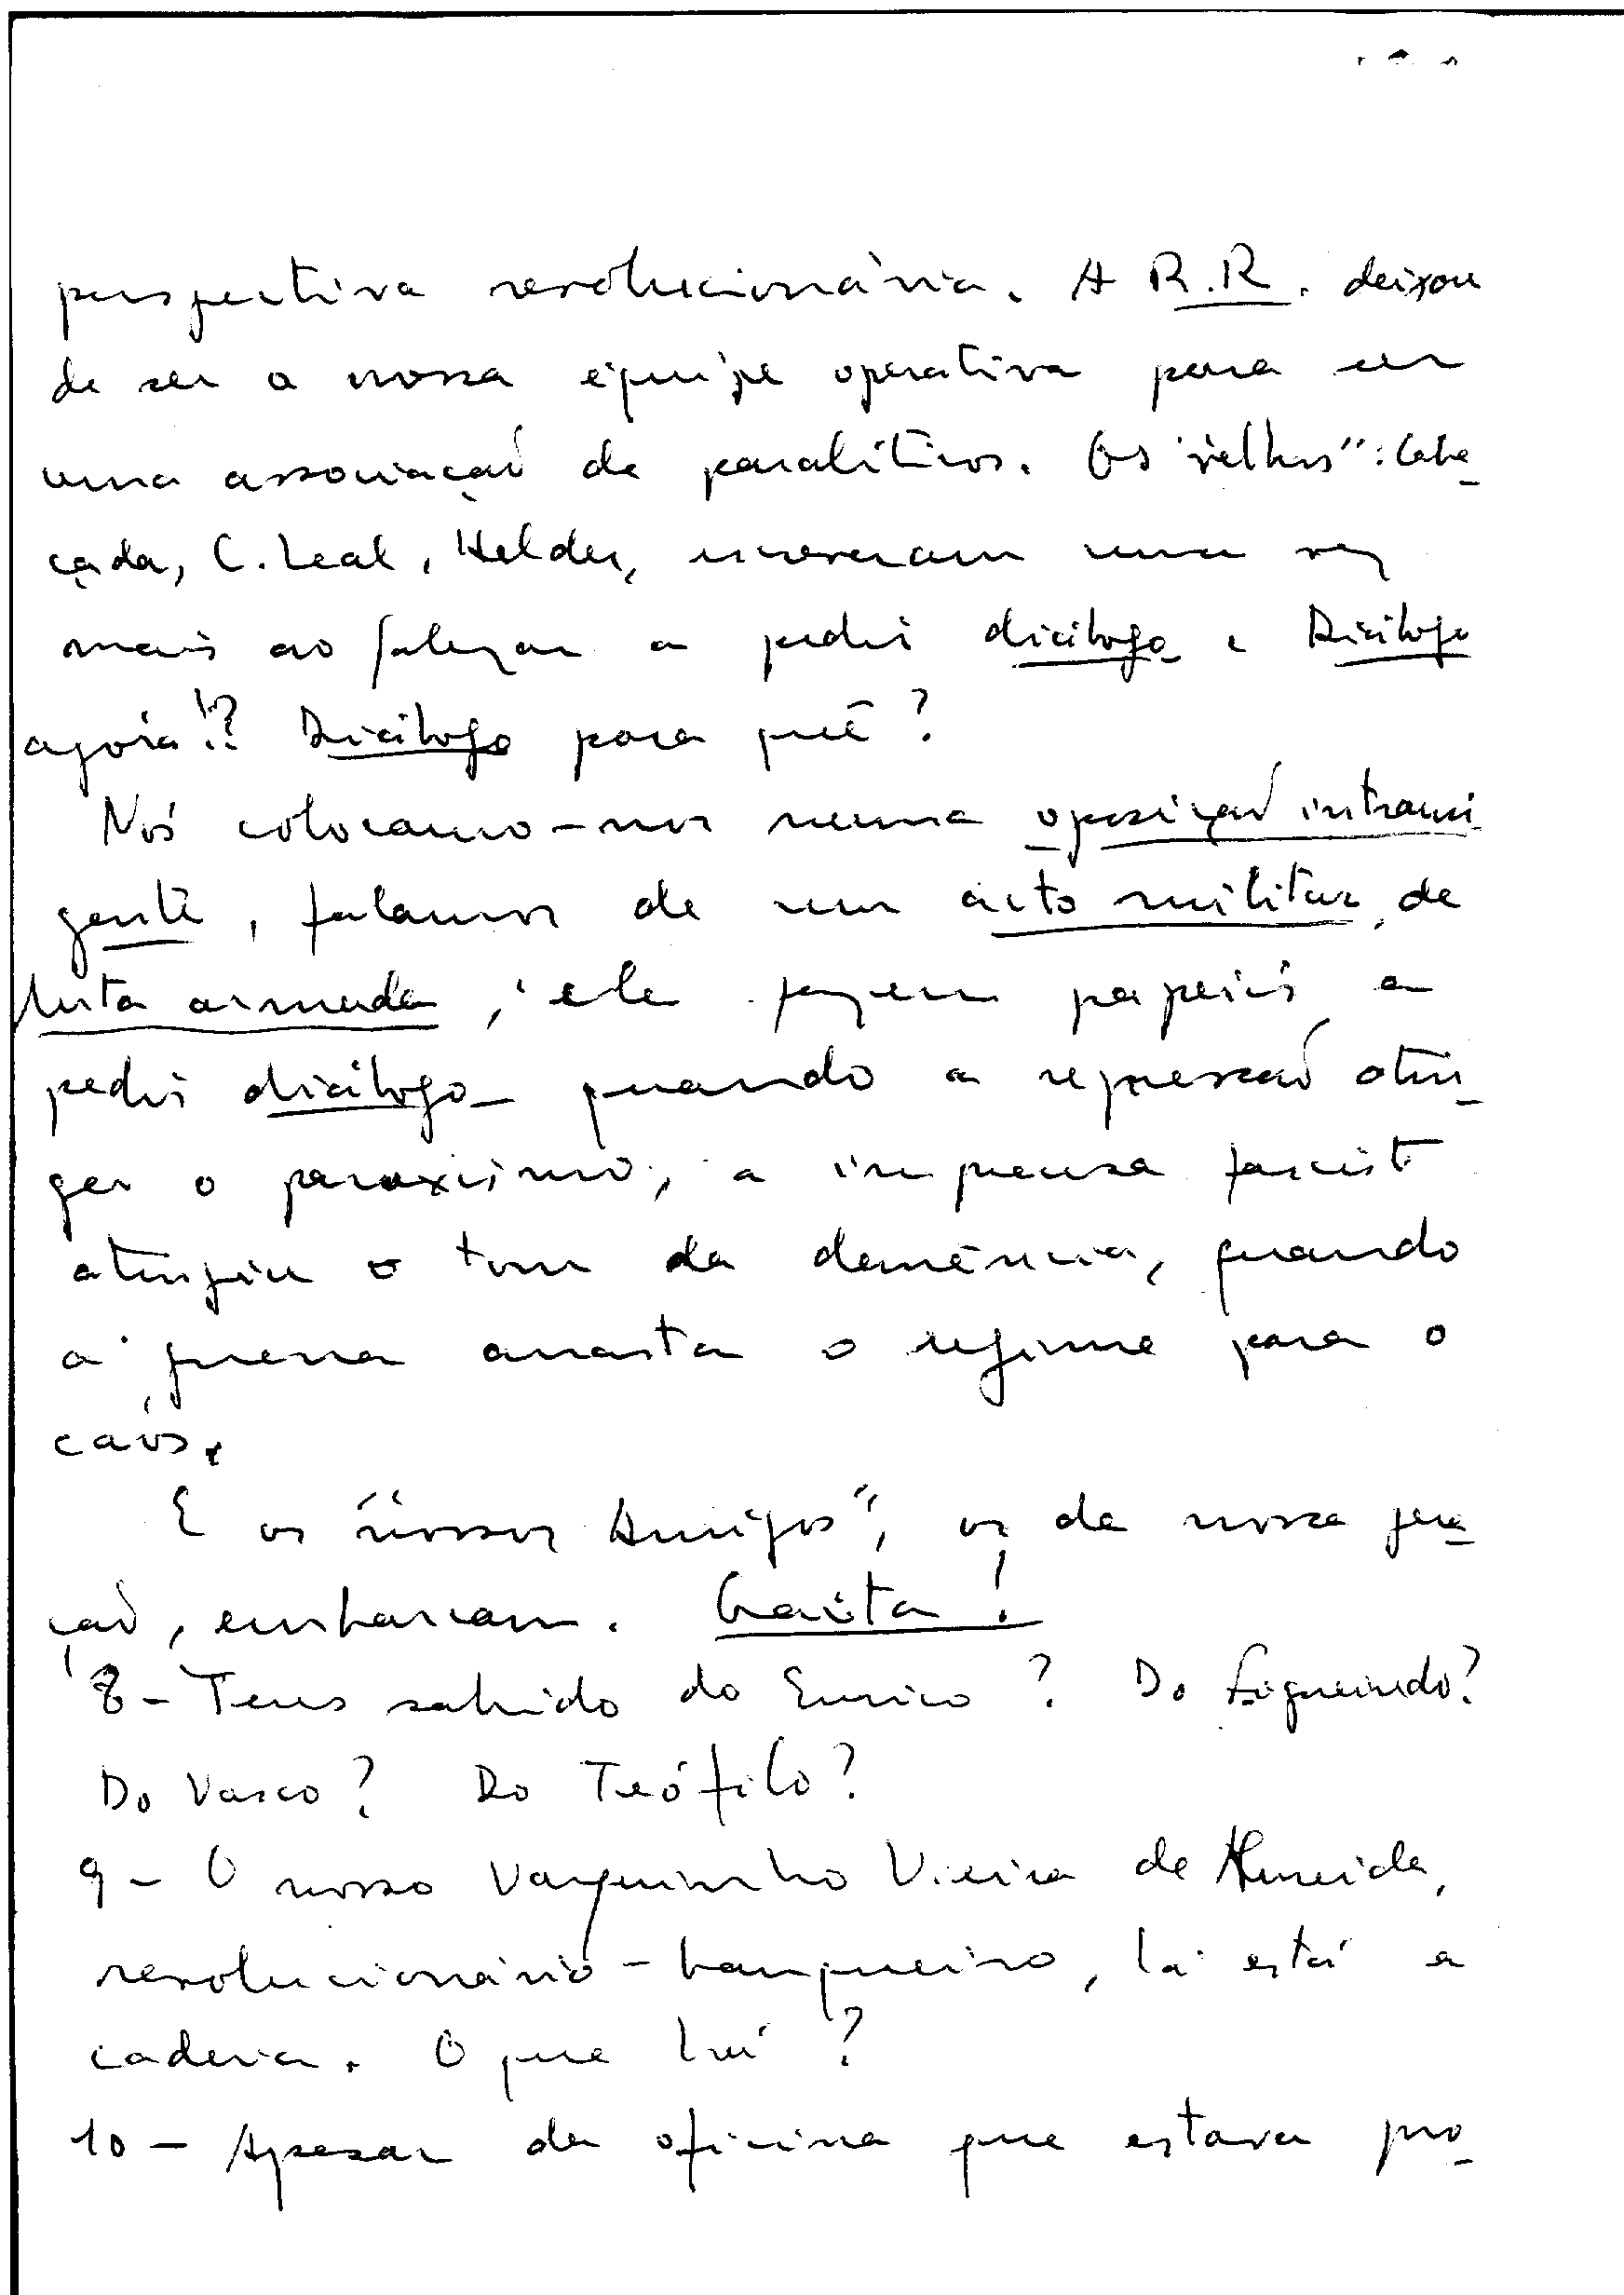 perspectiva revolucionária. A R.R. deixou
de ser a nossa équipe operativa para ser
uma associação de paralíticos. Os "velhos": Cabe-
çada, C. Leal, Helder, escreveram uma vez
mais ao Salazar a pedir diálogo. Diálogo
agora!? Diálogo para quê?
Nós colocamo-nos numa oposição intransi
gente, falamos de um acto militar, de
luta armada, ele fazem papeis a
pedir diálogo - quando a repressão atin-
ger o paroxismo, a imprensa fascist
atingiu o tom da demência, quando
a guerra arrasta o regime para o
caós.
E os "nossos Amigos", os da nossa gera-
ção, embarcam. Gaita!
8 - Tens sabido do Eurico? Do Figueiredo?
Do Vasco? Do Teófilo?
9 - O nosso Vasquinho Vieira de Almeida,
revolucionário-banqueiro, lá está a
cadeia. O que há?
10 - Apesar da oficina que estava pro-